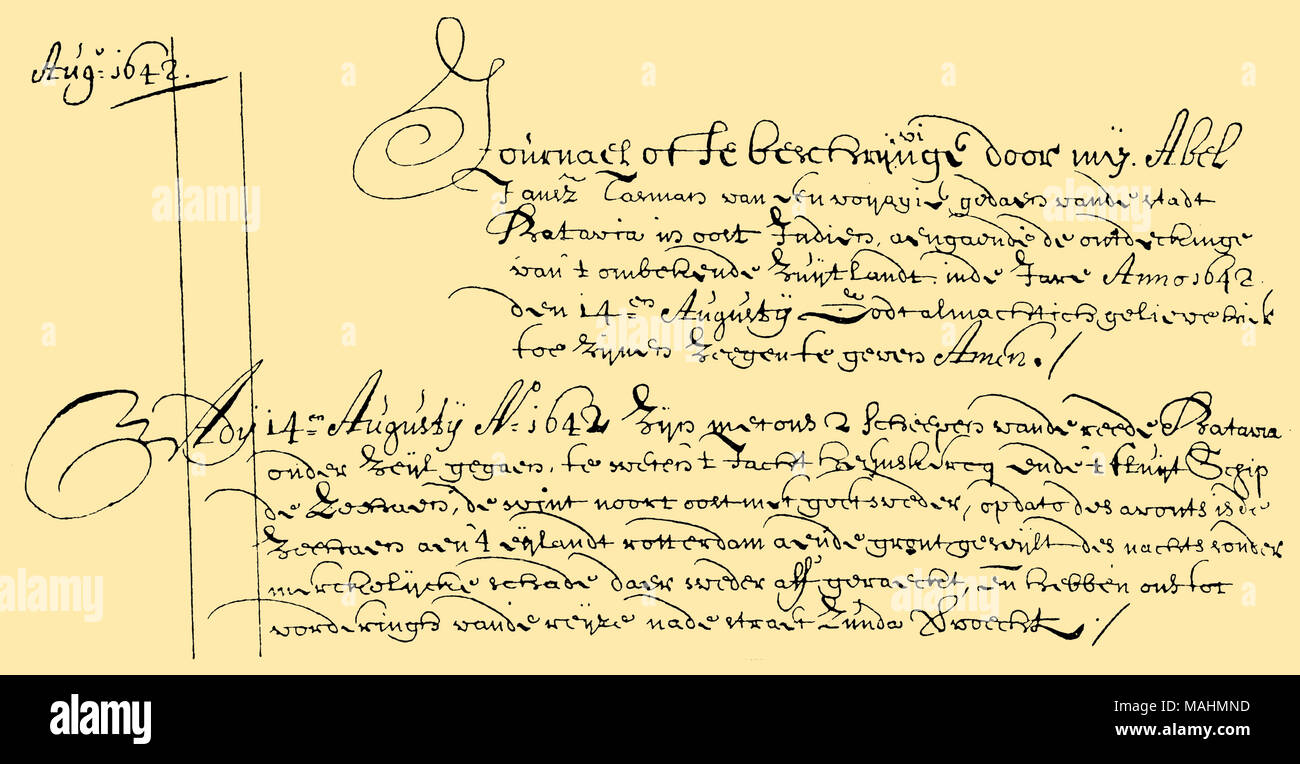 Augᵒ: 1642.
Journael ofte beschrijvinge door mij. Abel
Jansz Tasman van een voijagie gedaen vande stadt
Batavia in oost Indien, aengaende de ontdeckinge
van 't onbekende Zuijtlandt. inde Jare Anno 1642.
den 14en Augustij Godt almachtich gelieve hier
toe zijnen Zeegen te geven Amen. /
Adij 14en Augustij Aº 1642 Zijn met ons 2 scheepen vande reede Batavia
onder Zeijl gegaen, te weten 't Jacht heemskercq ende 't fluijt Schip
de Zeehaen, de wint noort oost met goet weder, op dato des avonts is de
Zeehaen aen 't eijlandt rotterdam aende gront gewijlt des nachts sonder
merckelijcke schade daer weder aff geraeckt, en hebben ons tot
vorderingh vande reijze nade straet Zunda
alamy
MAHMND
www.alamy.com